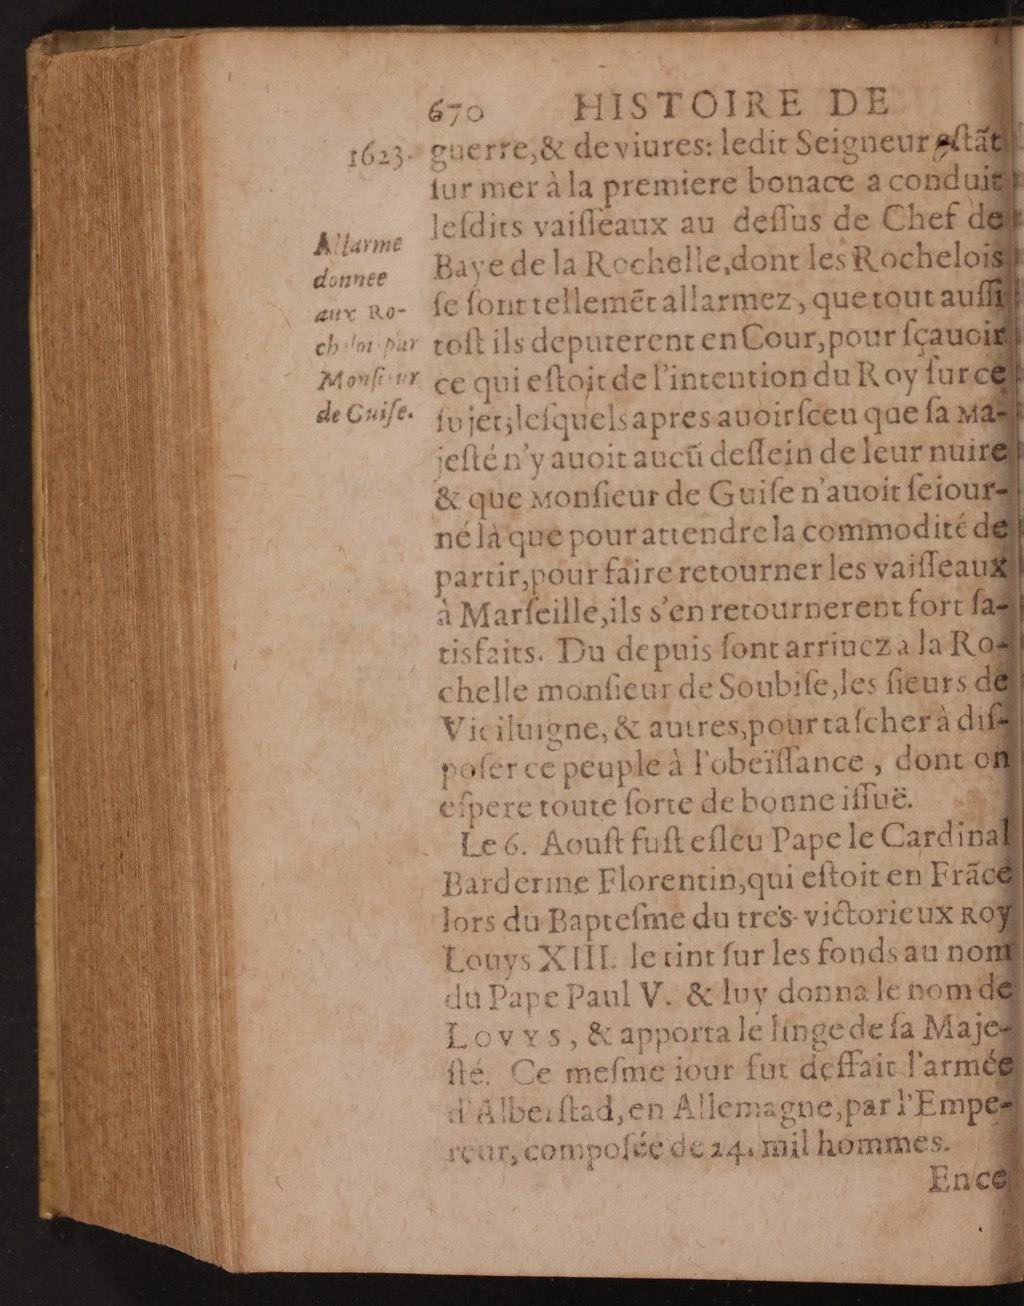 670 HISTOIRE DE
1623. guerre, & de viures: ledit Seigneur eſtãt
ſur mer à la premiere bonace a conduit
leſdits vaiſſeaux au deſſus de Chef de
Baye de la Rochelle, dont les Rochelois
ſe ſont tellemẽt allarmez, que tout auſſi
toſt ils deputerent en Cour, pour ſçauoir
ce qui eſtoit de l'intention du Roy ſur ce
ſujet; leſquels apres auoir ſceu que ſa Ma-
jeſté n'y auoit aucũ deſſein de leur nuire
& que Monſieur de Guiſe n'auoit ſeiour-
né là que pour attendre la commodité de
partir, pour faire retourner les vaiſſeaux
à Marſeille, ils s'en retournerent fort ſa-
tisfaits. Du depuis ſont arriuez a la Ro-
chelle monſieur de Soubiſe, les ſieurs de
& autres, pour taſcher à diſ-
poſer ce peuple à l'obeïſſance, dont on
eſpere toute ſorte de bonne iſſuë.
Le 6. Aouſt fuſt eſleu Pape le Cardinal
Barderine Florentin, qui eſtoit en Frãce
lors du Bapteſme du tres-victorieux Roy
Louys XIII. le tint ſur les fonds au nom
du Pape Paul V. & luy donna le nom de
LOVYS, & apporta le linge de ſa Maje-
ſté. Ce meſme iour fut deffait l'armée
d'Alberſtad, en Allemagne, par l'Empe-
reur, compoſée de 24. mil hommes.
Ence
Allarme
donnee
aux Ro-
cheloi par
Monſieur
de Guiſe.